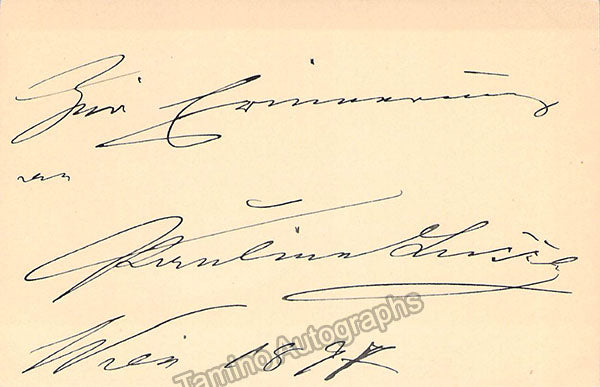 Zur Erinnerung
an
Pauline Lucca
Wien 1897
Tamino Autographs